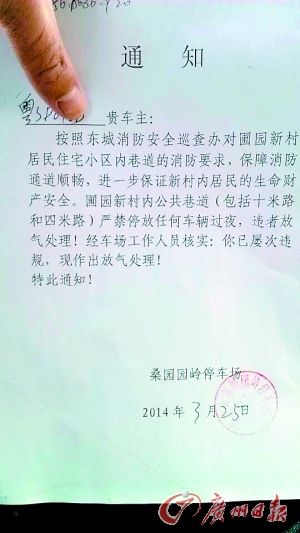 通知
贵车主：
按照东城消防安全巡查办对圃园新村
居民住宅小区内巷道的消防要求，保障消防
通道顺畅，进一步保证新村内居民的生命财
产安全。圃园新村内公共巷道（包括十米路
和四米路）严禁停放任何车辆过夜，违者放
气处理！经车场工作人员核实：你已屡次违
规，现作出放气处理！
特此通知！
桑园园岭停车场
2014年3月25日
广州日报